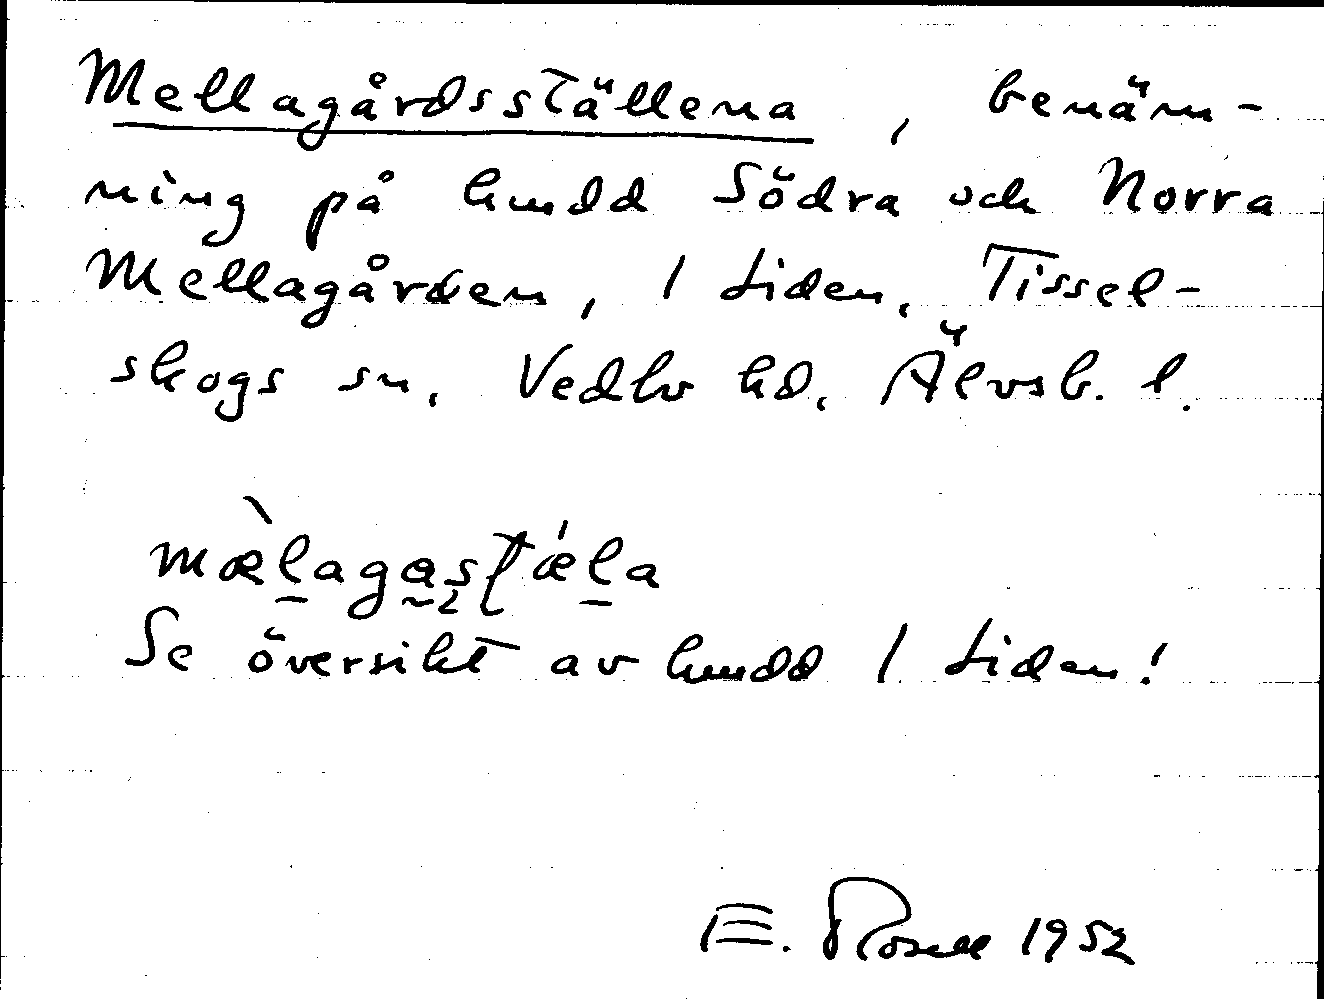 Mellagårdsställena, benäm-
ning på hmdd Södra och Norra
Mellagården, 1 Liden, Tissel-
skogs sn, Vedbo hd, Älvsb. l.
mæ̀lagasta̍ela
Se översikt av hmdd 1 Liden!
E. Rosell 1952